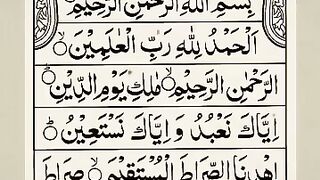 بِسْمِ اللّٰهِ الرَّحْمٰنِ الرَّحِيْمِ
اَلْحَمْدُ لِلّٰهِ رَبِّ الْعٰلَمِيْنَ ۙ
الرَّحْمٰنِ الرَّحِيْمِ ۙ مٰلِكِ يَوْمِ الدِّيْنِ ؕ
اِيَّاكَ نَعْبُدُ وَ اِيَّاكَ نَسْتَعِيْنُ ؕ
اِهْدِنَا الصِّرَاطَ الْمُسْتَقِيْمَ ۙ صِرَاطَ